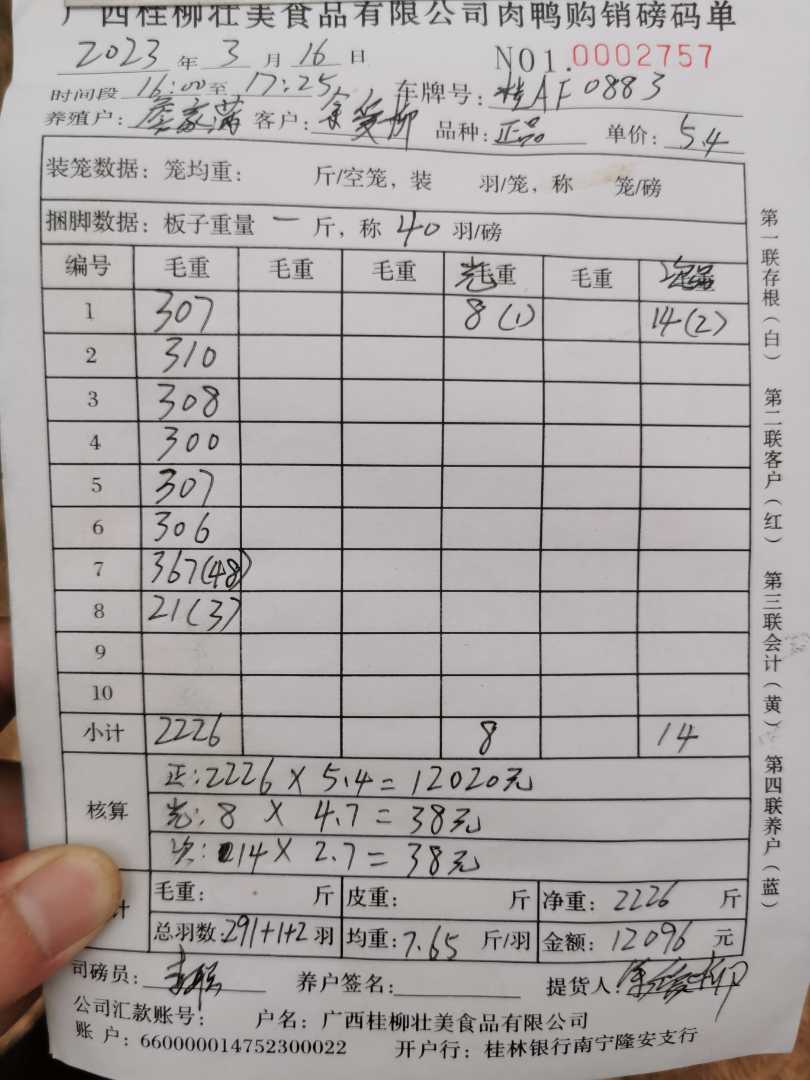 广西桂柳壮美食品有限公司肉鸭购销磅码单
2023 年 3 月 16 日 NO1.0002757
时间段 16:00至 17:25 车牌号: 桂AF0883
养殖户: 客户: 品种: 正品 单价: 5.4
装笼数据: 笼均重: 斤/空笼, 装 羽/笼, 称 笼/磅
捆脚数据: 板子重量 一 斤, 称 40 羽/磅
编号 毛重 毛重 毛重 毛重 毛重
1 307 8(1) 14(2)
2 310
3 308
4 300
5 307
6 306
7 367(48)
8 21(3)
9
10
小计 2226 8 14
核算
正:2226 X 5.4 = 12020元
光: 8 X 4.7 = 38元
次: 14 X 2.7 = 38元
计
毛重: 斤 皮重: 斤 净重: 2226 斤
总羽数: 291+1+2 羽 均重: 7.65 斤/羽 金额: 12096 元
司磅员: 养户签名: 提货人:
公司汇款账号: 户名: 广西桂柳壮美食品有限公司
账 户: 660000014752300022 开户行: 桂林银行南宁隆安支行
第一联存根(白) 第二联客户(红) 第三联会计(黄) 第四联养户(蓝)